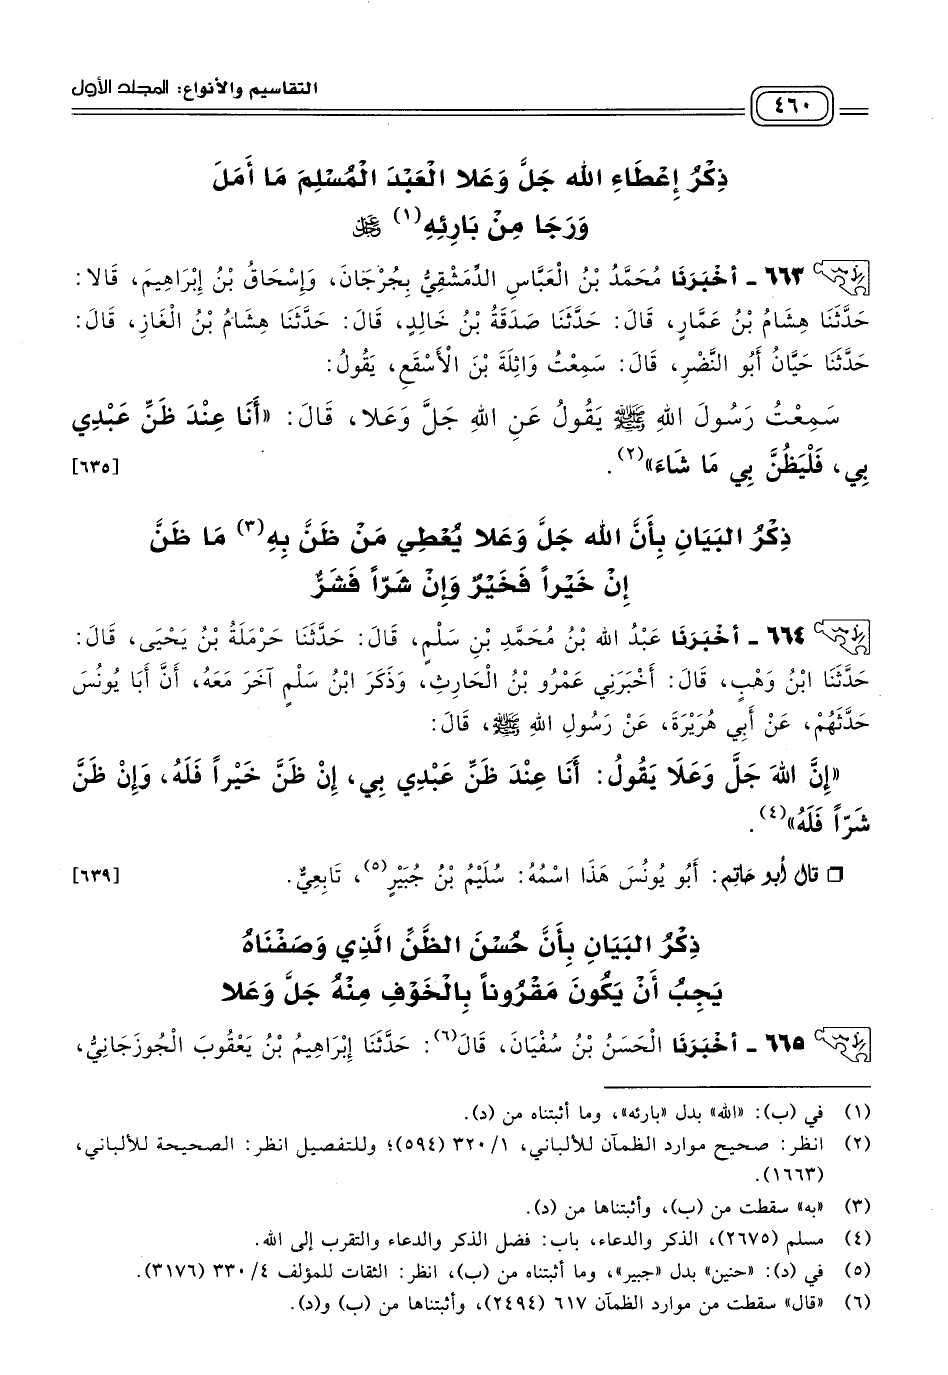 التقاسيم والأنواع: المجلد الأول
٤٦٠
ذِكْرُ إِعْطَاءِ الله جَلَّ وَعَلا الْعَبْدَ الْمُسْلِمَ مَا أَمَلَ
وَرَجَا مِنْ بَارِئِهِ(١) ﷿
٦٦٣ - أخْبَرَنَا مُحَمَّدُ بْنُ الْعَبَّاسِ الدِّمَشْقِيُّ بِجُرْجَانَ، وَإِسْحَاقُ بْنُ إِبْرَاهِيمَ، قَالا:
حَدَّثَنَا هِشَامُ بْنُ عَمَّارٍ، قَالَ: حَدَّثَنَا صَدَقَةُ بْنُ خَالِدٍ، قَالَ: حَدَّثَنَا هِشَامُ بْنُ الْغَازِ، قَالَ:
حَدَّثَنَا حَيَّانُ أَبُو النَّضْرِ، قَالَ: سَمِعْتُ وَاثِلَةَ بْنَ الْأَسْقَعِ، يَقُولُ:
سَمِعْتُ رَسُولَ اللهِ ﷺ يَقُولُ عَنِ اللهِ جَلَّ وَعَلا، قَالَ: «أَنَا عِنْدَ ظَنِّ عَبْدِي
بِي، فَلْيَظُنَّ بِي مَا شَاءَ»(٢). [٦٣٥]
ذِكْرُ البَيَانِ بِأَنَّ الله جَلَّ وَعَلا يُعْطِي مَنْ ظَنَّ بِهِ(٣) مَا ظَنَّ
إِنْ خَيْراً فَخَيْرٌ وَإِنْ شَرّاً فَشَرٌّ
٦٦٤ - أخْبَرَنَا عَبْدُ الله بْنُ مُحَمَّدِ بْنِ سَلْمٍ، قَالَ: حَدَّثَنَا حَرْمَلَةُ بْنُ يَحْيَى، قَالَ:
حَدَّثَنَا ابْنُ وَهْبٍ، قَالَ: أَخْبَرَنِي عَمْرُو بْنُ الْحَارِثِ، وَذَكَرَ ابْنُ سَلْمٍ آخَرَ مَعَهُ، أَنَّ أَبَا يُونُسَ
حَدَّثَهُمْ، عَنْ أَبِي هُرَيْرَةَ، عَنْ رَسُولِ اللهِ ﷺ، قَالَ:
«إِنَّ اللهَ جَلَّ وَعَلَا يَقُولُ: أَنَا عِنْدَ ظَنِّ عَبْدِي بِي، إِنْ ظَنَّ خَيْراً فَلَهُ، وَإِنْ ظَنَّ
شَرّاً فَلَهُ»(٤).
❏ قال أبو حاتم: أَبُو يُونُسَ هَذَا اسْمُهُ: سُلَيْمُ بْنُ جُبَيْرٍ(٥)، تَابِعِيٌّ. [٦٣٩]
ذِكْرُ البَيَانِ بِأَنَّ حُسْنَ الظَّنِّ الَّذِي وَصَفْنَاهُ
يَجِبُ أَنْ يَكُونَ مَقْرُوناً بِالْخَوْفِ مِنْهُ جَلَّ وَعَلا
٦٦٥ - أخْبَرَنَا الْحَسَنُ بْنُ سُفْيَانَ، قَالَ(٦): حَدَّثَنَا إِبْرَاهِيمُ بْنُ يَعْقُوبَ الْجُوزَجَانِيُّ،
(١) في (ب): «الله» بدل «بارئه»، وما أثبتناه من (د).
(٢) انظر: صحيح موارد الظمآن للألباني، ٣٢٠/١ (٥٩٤)؛ وللتفصيل انظر: الصحيحة للألباني،
(١٦٦٣).
(٣) «به» سقطت من (ب)، وأثبتناها من (د).
(٤) مسلم (٢٦٧٥)، الذكر والدعاء، باب: فضل الذكر والدعاء والتقرب إلى الله.
(٥) في (د): «حنين» بدل «جبير»، وما أثبتناه من (ب)، انظر: الثقات للمؤلف ٣٣٠/٤ (٣١٧٦).
(٦) «قال» سقطت من موارد الظمآن ٦١٧ (٢٤٩٤)، وأثبتناها من (ب) و(د).